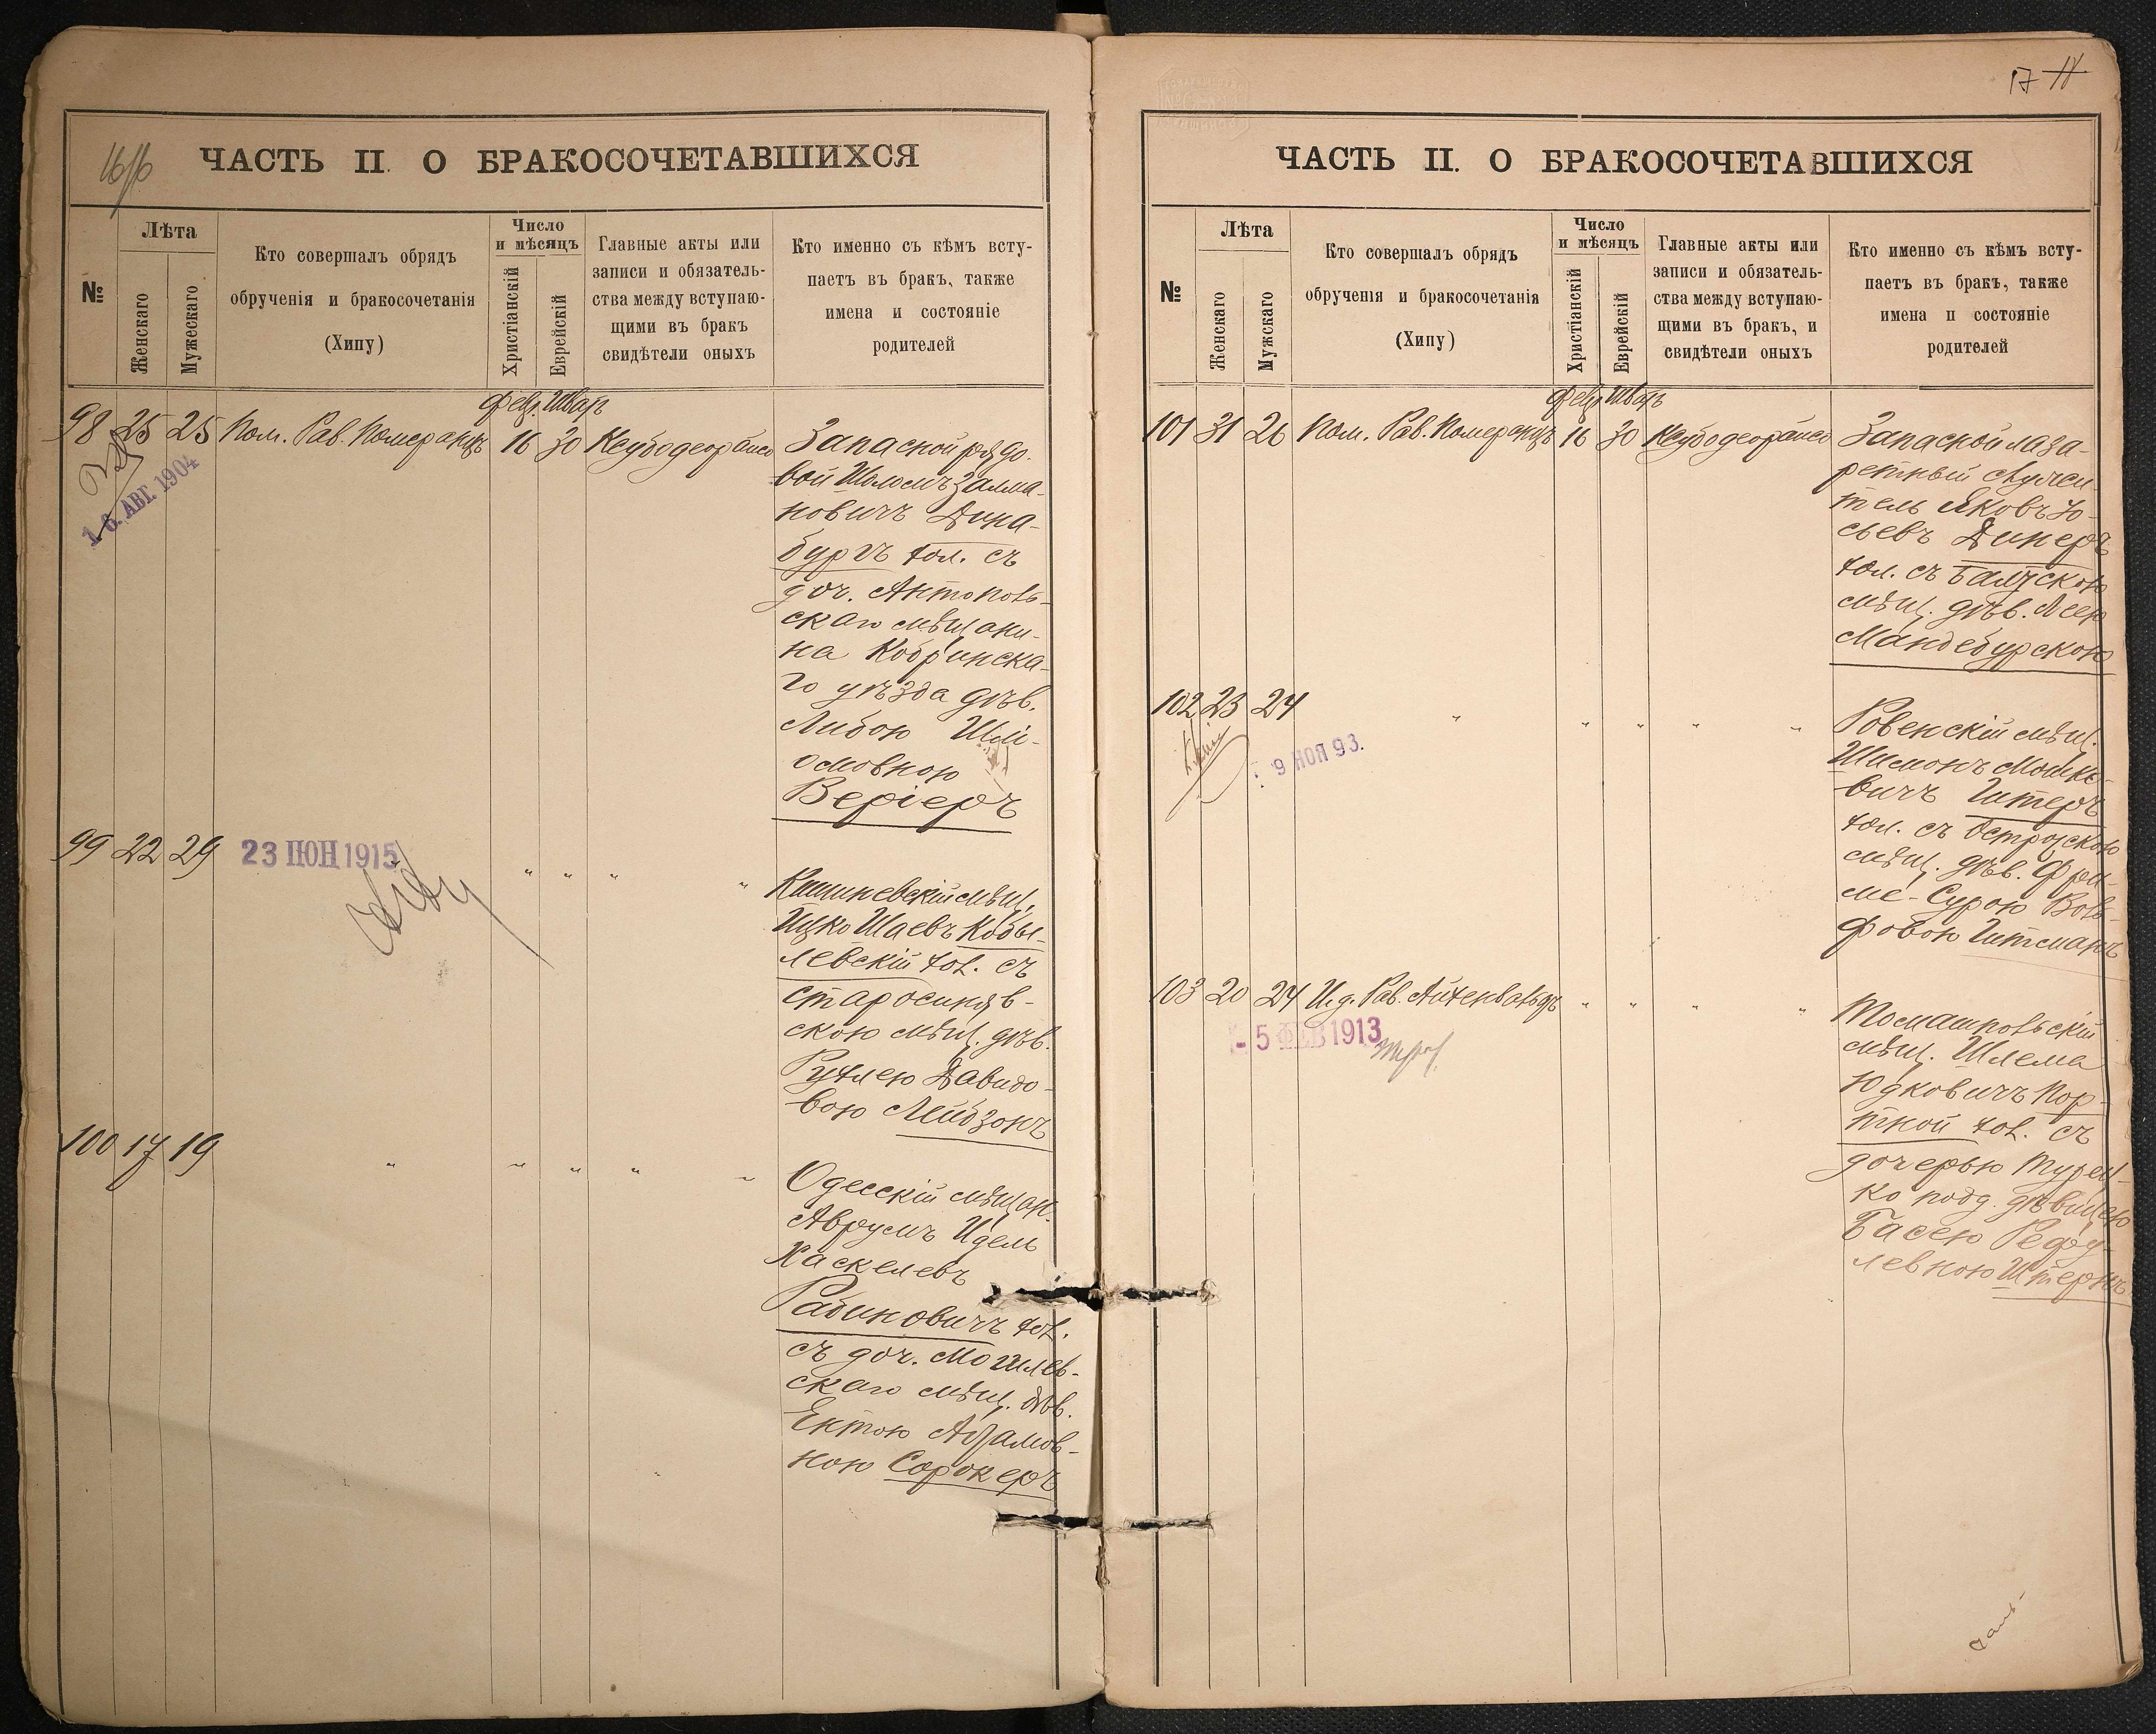 16
ЧАСТЬ II. О БРАКОСОЧЕТАВШИХСЯ
№
Лѣта
Женскаго
Мужескаго
Кто совершалъ обрядъ
обрученія и бракосочетанія
(Хипу)
Число
и мѣсяцъ
Христіанскій
Еврейскій
Главные акты или
записи и обязатель-
ства между вступаю-
щими въ бракъ
свидѣтели оныхъ
Кто именно съ кѣмъ всту-
паетъ въ бракъ, также
имена и состояніе
родителей
Февр. Шватъ
98 25 25 Пом. Рав. Померанцъ 16 30
16. АВГ. 1904
Запасной рядо-
вой Шоломъ Залма-
новичъ Дина-
бургъ хол. съ
доч. Антополь-
скаго мѣщани-
на Кобринска-
го уѣзда дѣв.
Либою Шлі-
омовною
Веріеръ
99 22 29
23 ІЮН 1915
" " " "
Кишиневскій мѣщ.
Ицко Шаевъ Кобы-
левскій хол. съ
старосиняв-
скою мѣщ. дѣв.
Рухлею Давидо-
вою Лейбзонъ
100 17 19 " " " " "
Одесскій мѣщан.
Аврумъ Идель
Хаскелевъ
Рабиновичъ хол.
съ доч. Могилев-
скаго мѣщ. дѣв.
Ентою Абрамов-
ною Сорокеръ
17
ЧАСТЬ II. О БРАКОСОЧЕТАВШИХСЯ
№
Лѣта
Женскаго
Мужскаго
Кто совершалъ обрядъ
обрученія и бракосочетанія
(Хипу)
Число
и мѣсяцъ
Христіанскій
Еврейскій
Главные акты или
записи и обязатель-
ства между вступаю-
щими въ бракъ, и
свидѣтели оныхъ
Кто именно съ кѣмъ всту-
паетъ въ бракъ, также
имена и состояніе
родителей
Февр. Шватъ
101 31 26 Пом. Рав. Померанцъ 16 30
Запасной лаза-
ретный служи-
тель Яковъ Іо-
сьевъ Динеръ
хол. съ Балтскою
мѣщ. дѣв. Леею
Мандебурскою
102 23 24 " " " " "
9 НОЯ 93.
Ровенскій мѣщ.
Шимонъ Мошко-
вичъ Штеръ
хол. съ Острожскою
мѣщ. дѣв. Фрей-
ме-Сурою Воль-
фовою Гитманъ
103 20 24 И. д. Рав. Айхенвальдъ " " " "
- 5 ФЕВ 1913
Томашпольскій
мѣщ. Шлема
Юдковичъ Пор-
тной хол. съ
дочерью Турец-
ко подд. дѣвицею
Басею Рефу-
левною Штернъ